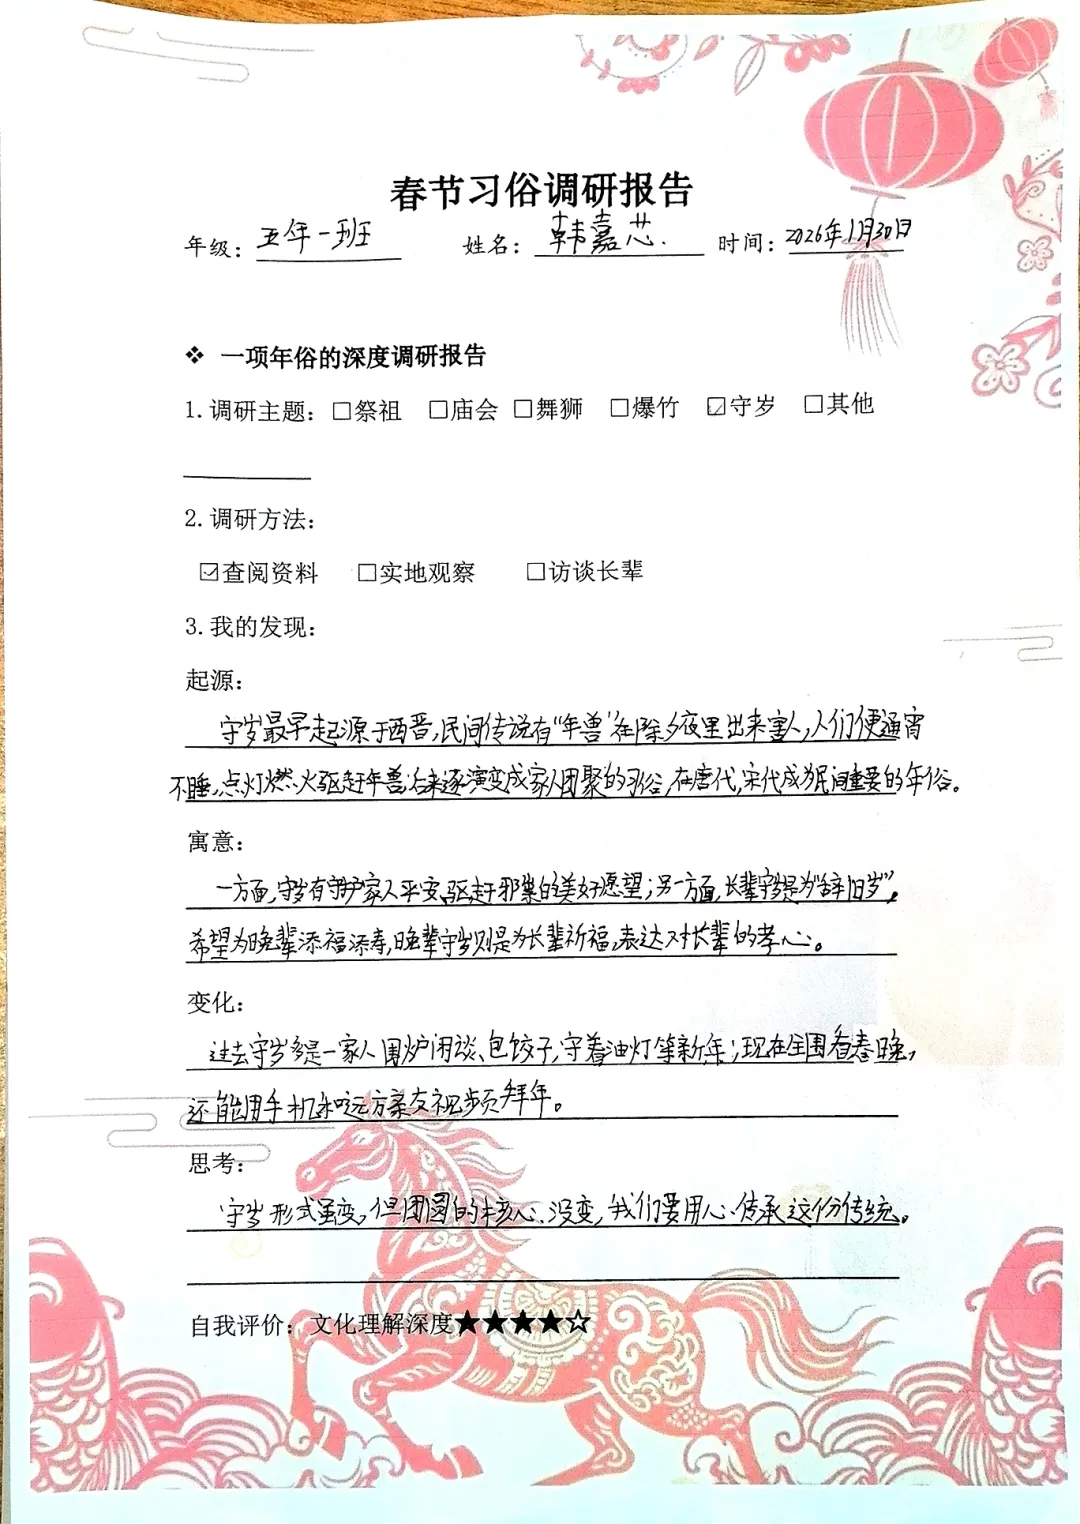 春节习俗调研报告
年级：五年一班 姓名：韩嘉芯. 时间：2026年1月30日
❖ 一项年俗的深度调研报告
1.调研主题：□祭祖 □庙会 □舞狮 □爆竹 ☑守岁 □其他
2.调研方法：
☑查阅资料 □实地观察 □访谈长辈
3.我的发现：
起源：
守岁最早起源于西晋,民间传说有“年兽”在除夕夜里出来害人,人们便通宵
不睡,点灯燃火驱赶年兽,后来逐演变成家人团聚的习俗,在唐代,宋代成为民间重要的年俗。
寓意：
一方面,守岁有守护家人平安,驱赶邪祟的美好愿望;另一方面,长辈守岁是为“辞旧岁”,
希望为晚辈添福添寿,晚辈守岁则是为长辈祈福,表达对长辈的孝心。
变化：
过去守岁多是一家人围炉闲谈、包饺子,守着油灯等新年;现在全围看春晚,
还能用手机和远方亲友视频拜年。
思考：
守岁形式虽变,但团圆的核心没变,我们要用心传承这份传统。
自我评价：文化理解深度★★★★☆